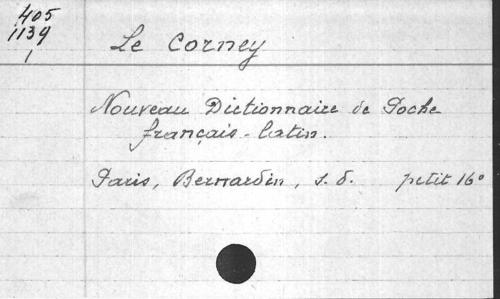 405
1139
1
Le Corney
Nouveau Dictionnaire de Poche
français-latin.
Paris, Bernardin, s. d. petit 16°